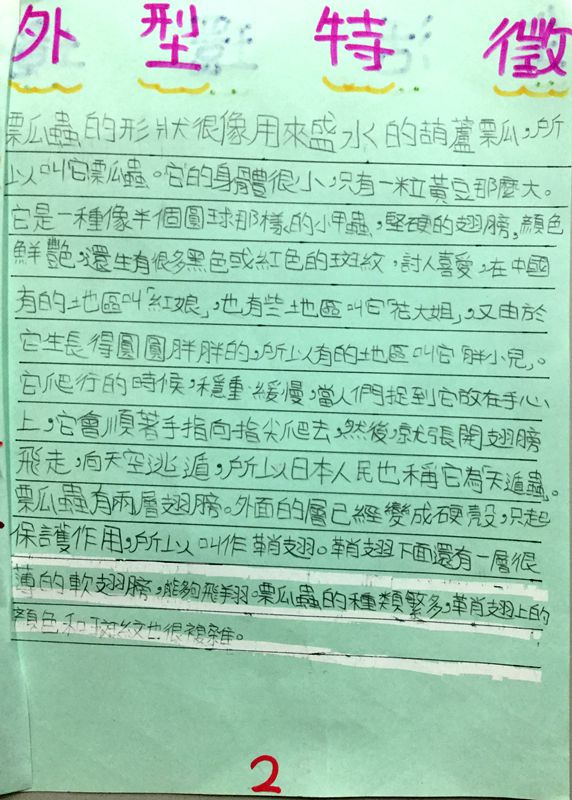 外型特徵
瓢瓜蟲的形狀很像用來盛水的葫蘆瓢瓜，所
以叫它瓢瓜蟲。它的身體很小，只有一粒黃豆那麼大。
它是一種像半個圓球那樣的小甲蟲，堅硬的翅膀，顏色
鮮艷，還生有很多黑色或紅色的斑紋，討人喜愛，在中國
有的地區叫「紅娘」，也有些地區叫它「花大姐」，又由於
它生長得圓圓胖胖的，所以有的地區叫它「胖小兒」。
它爬行的時候，穩重緩慢，當人們捉到它放在手心
上，它會順著手指向指尖爬去，然後，就張開翅膀
飛走，向天空逃遁，所以日本人民也稱它為「天遁蟲」。
瓢瓜蟲有兩層翅膀。外面的層已經變成硬殼，只起
保護作用，所以叫作鞘翅。鞘翅下面還有一層很
薄的軟翅膀，能夠飛翔。瓢瓜蟲的種類繁多，鞘翅上的
顏色和斑紋也很複雜。
2